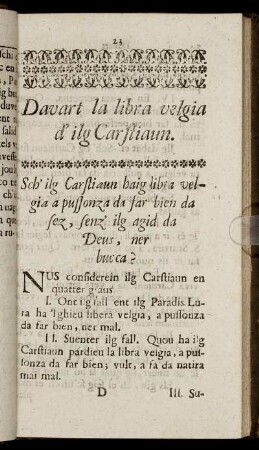 23
Davart la libra velgia
d'ilg Carstiaun.
Sch' ilg Carstiaun haig libra vel-
gia a pussonza da far bien da
sez, senz' ilg agid da
Deus, ner
bucca?
NUS considerein ilg Carstiaun en
quatter graus.
I. Ont ilg fall ent ilg Paradis. Lu-
ra ha 'lg hieu libera velgia, a pussonza
da far bien, ner mal.
II. Suenter ilg fall. Quou ha ilg
Carstiaun pardieu la libra velgia, a pus-
sonza da far bien; vult, a fa da natira
mai mal.
D III. Su-